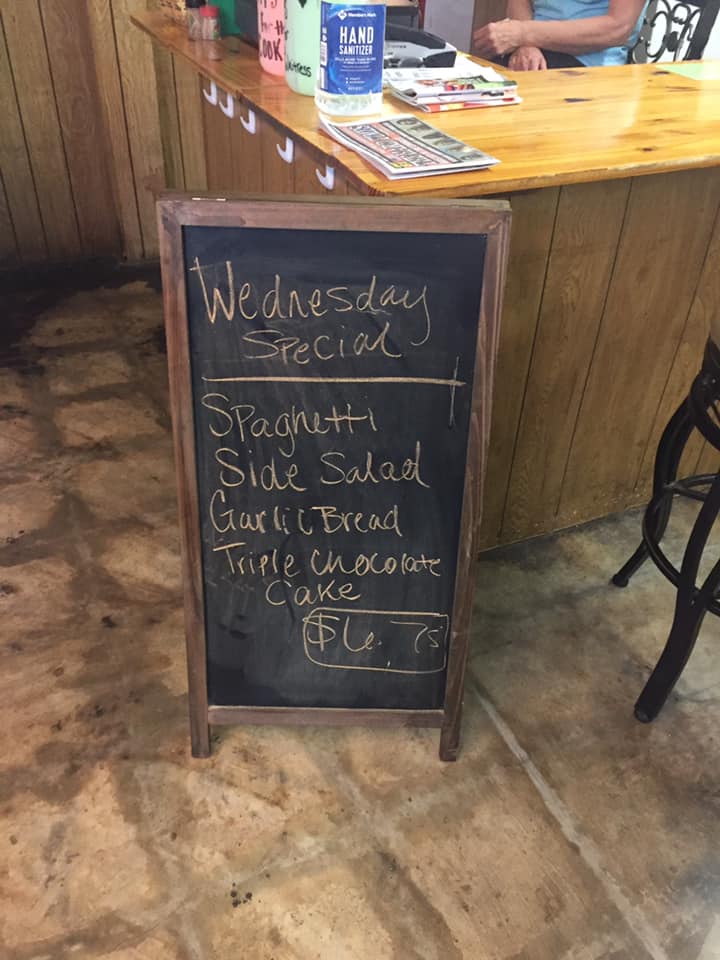 HAND
SANITIZER
Wednesday
Special
Spaghetti
Side Salad
Garlic Bread
Triple Chocolate
Cake
$6.75